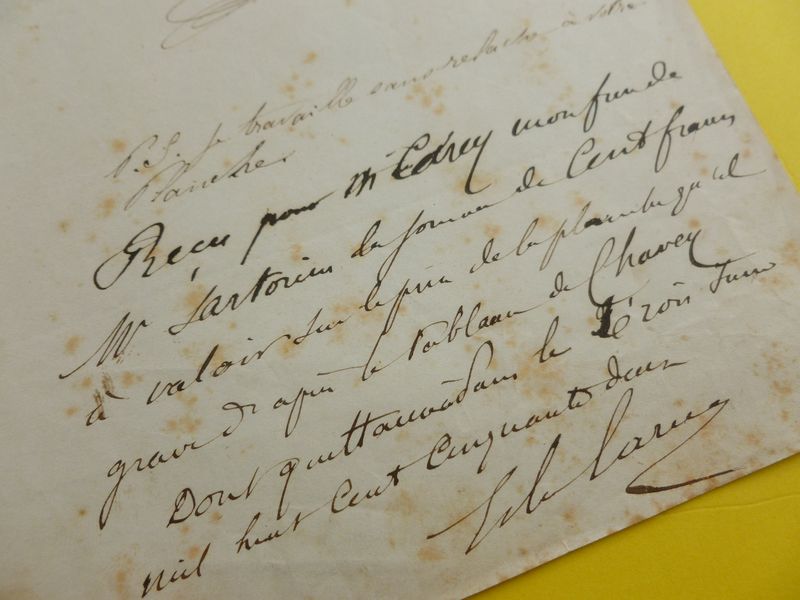 P.S. je travaille sans relache à votre
Planche.
Reçu pour Mr Carey mon fr de
Mr Sartorius la somme de Cent francs
à valoir sur le prix de la planche qu'il
grave d'après le tableau de Chavey
Dont quittance le Trois Juin
mil huit Cent Cinquante deux
Carey